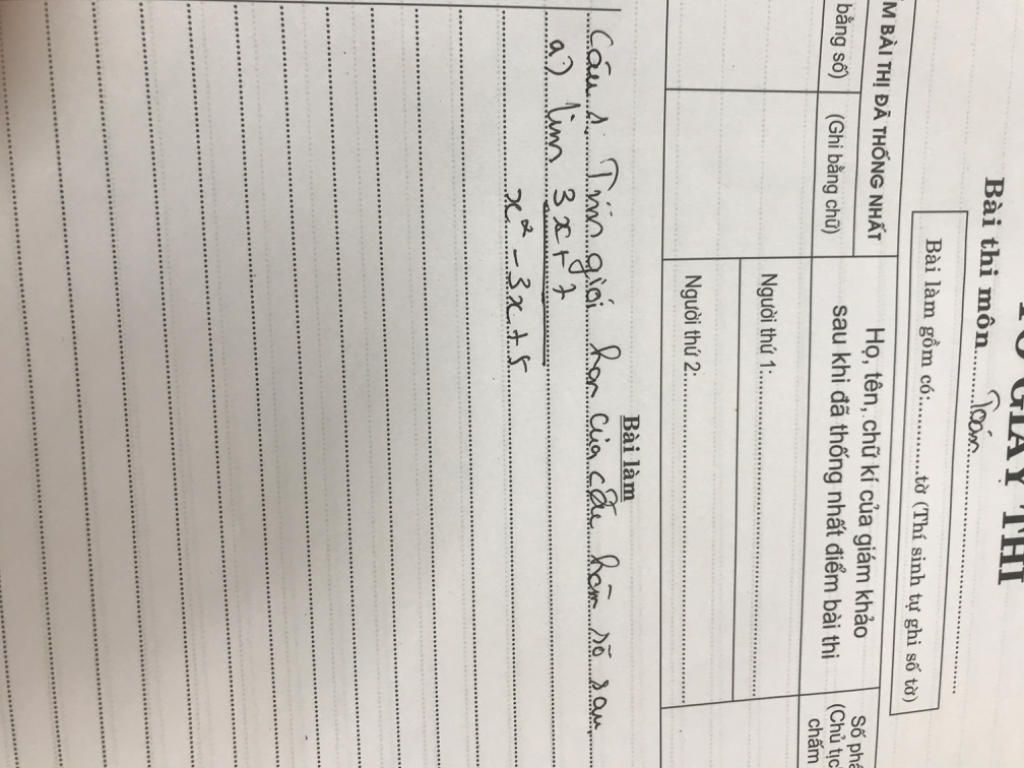 TỜ GIẤY THI
Bài thi môn Toán
Bài làm gồm có: tờ (Thí sinh tự ghi số tờ)
M BÀI THỊ ĐÃ THỐNG NHẤT
Họ, tên, chữ kí của giám khảo
sau khi đã thống nhất điểm bài thi
Số phá
(Chủ tịc
chấm
bằng số)
(Ghi bằng chữ)
Người thứ 1:
Người thứ 2:
Bài làm
Câu 1. Tìm giới hạn của các hàm số sau
a) lim 3x+7
x² - 3x + 5